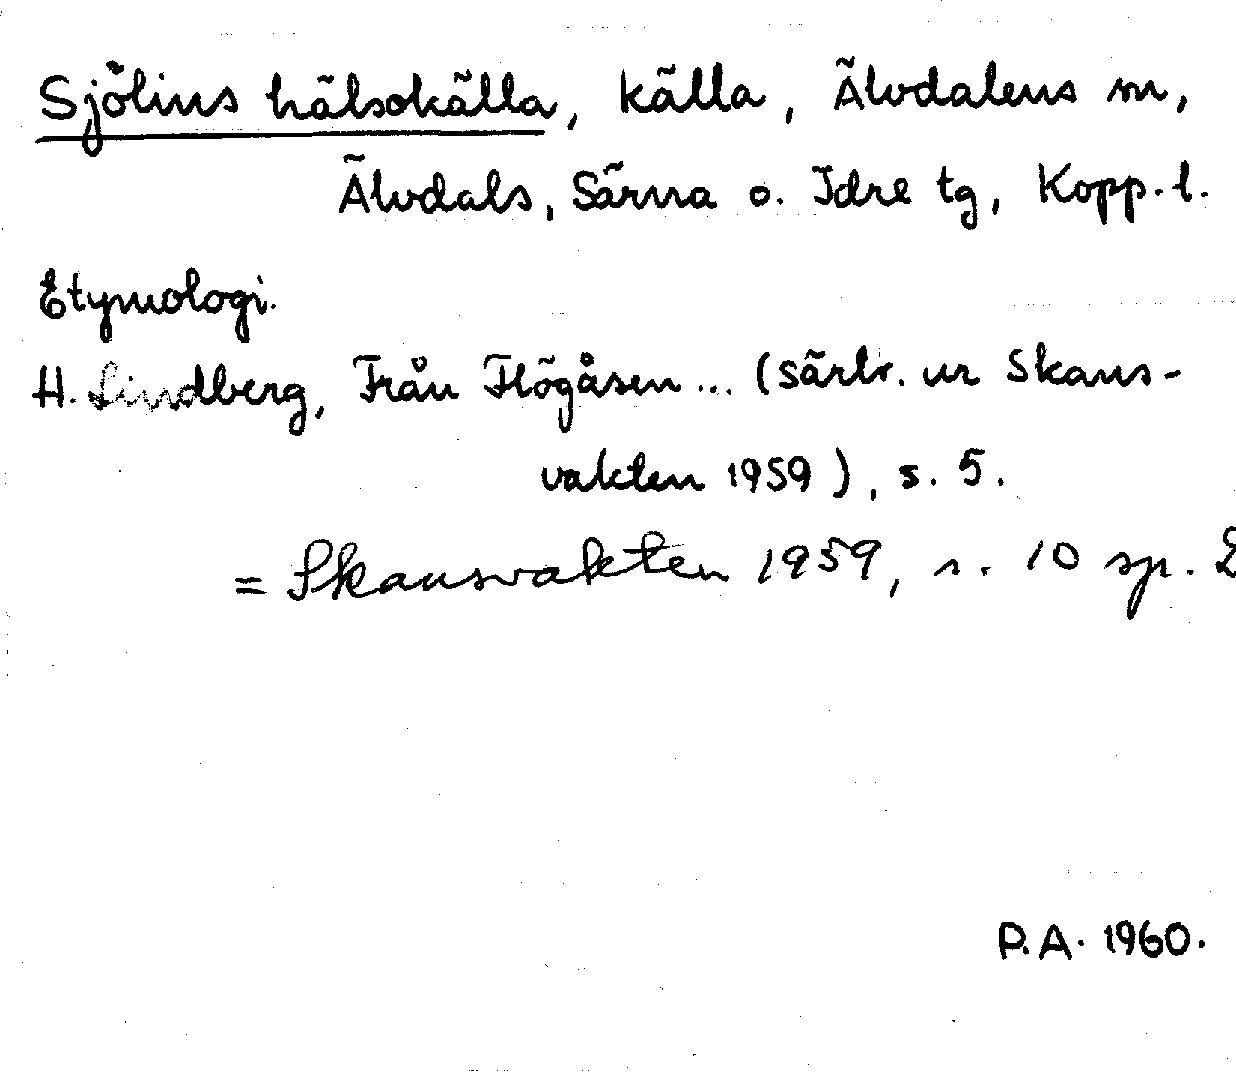 Sjölins hälsokälla, källa, Älvdalens sn,
Älvdals, Särna o. Idre tg, Kopp. l.
Etymologi.
H. Lindberg, Från Flögåsen... (särtr. ur Skans-
vakten 1959), s. 5.
= Skansvakten 1959, s. 10 sp. 2
P.A. 1960.